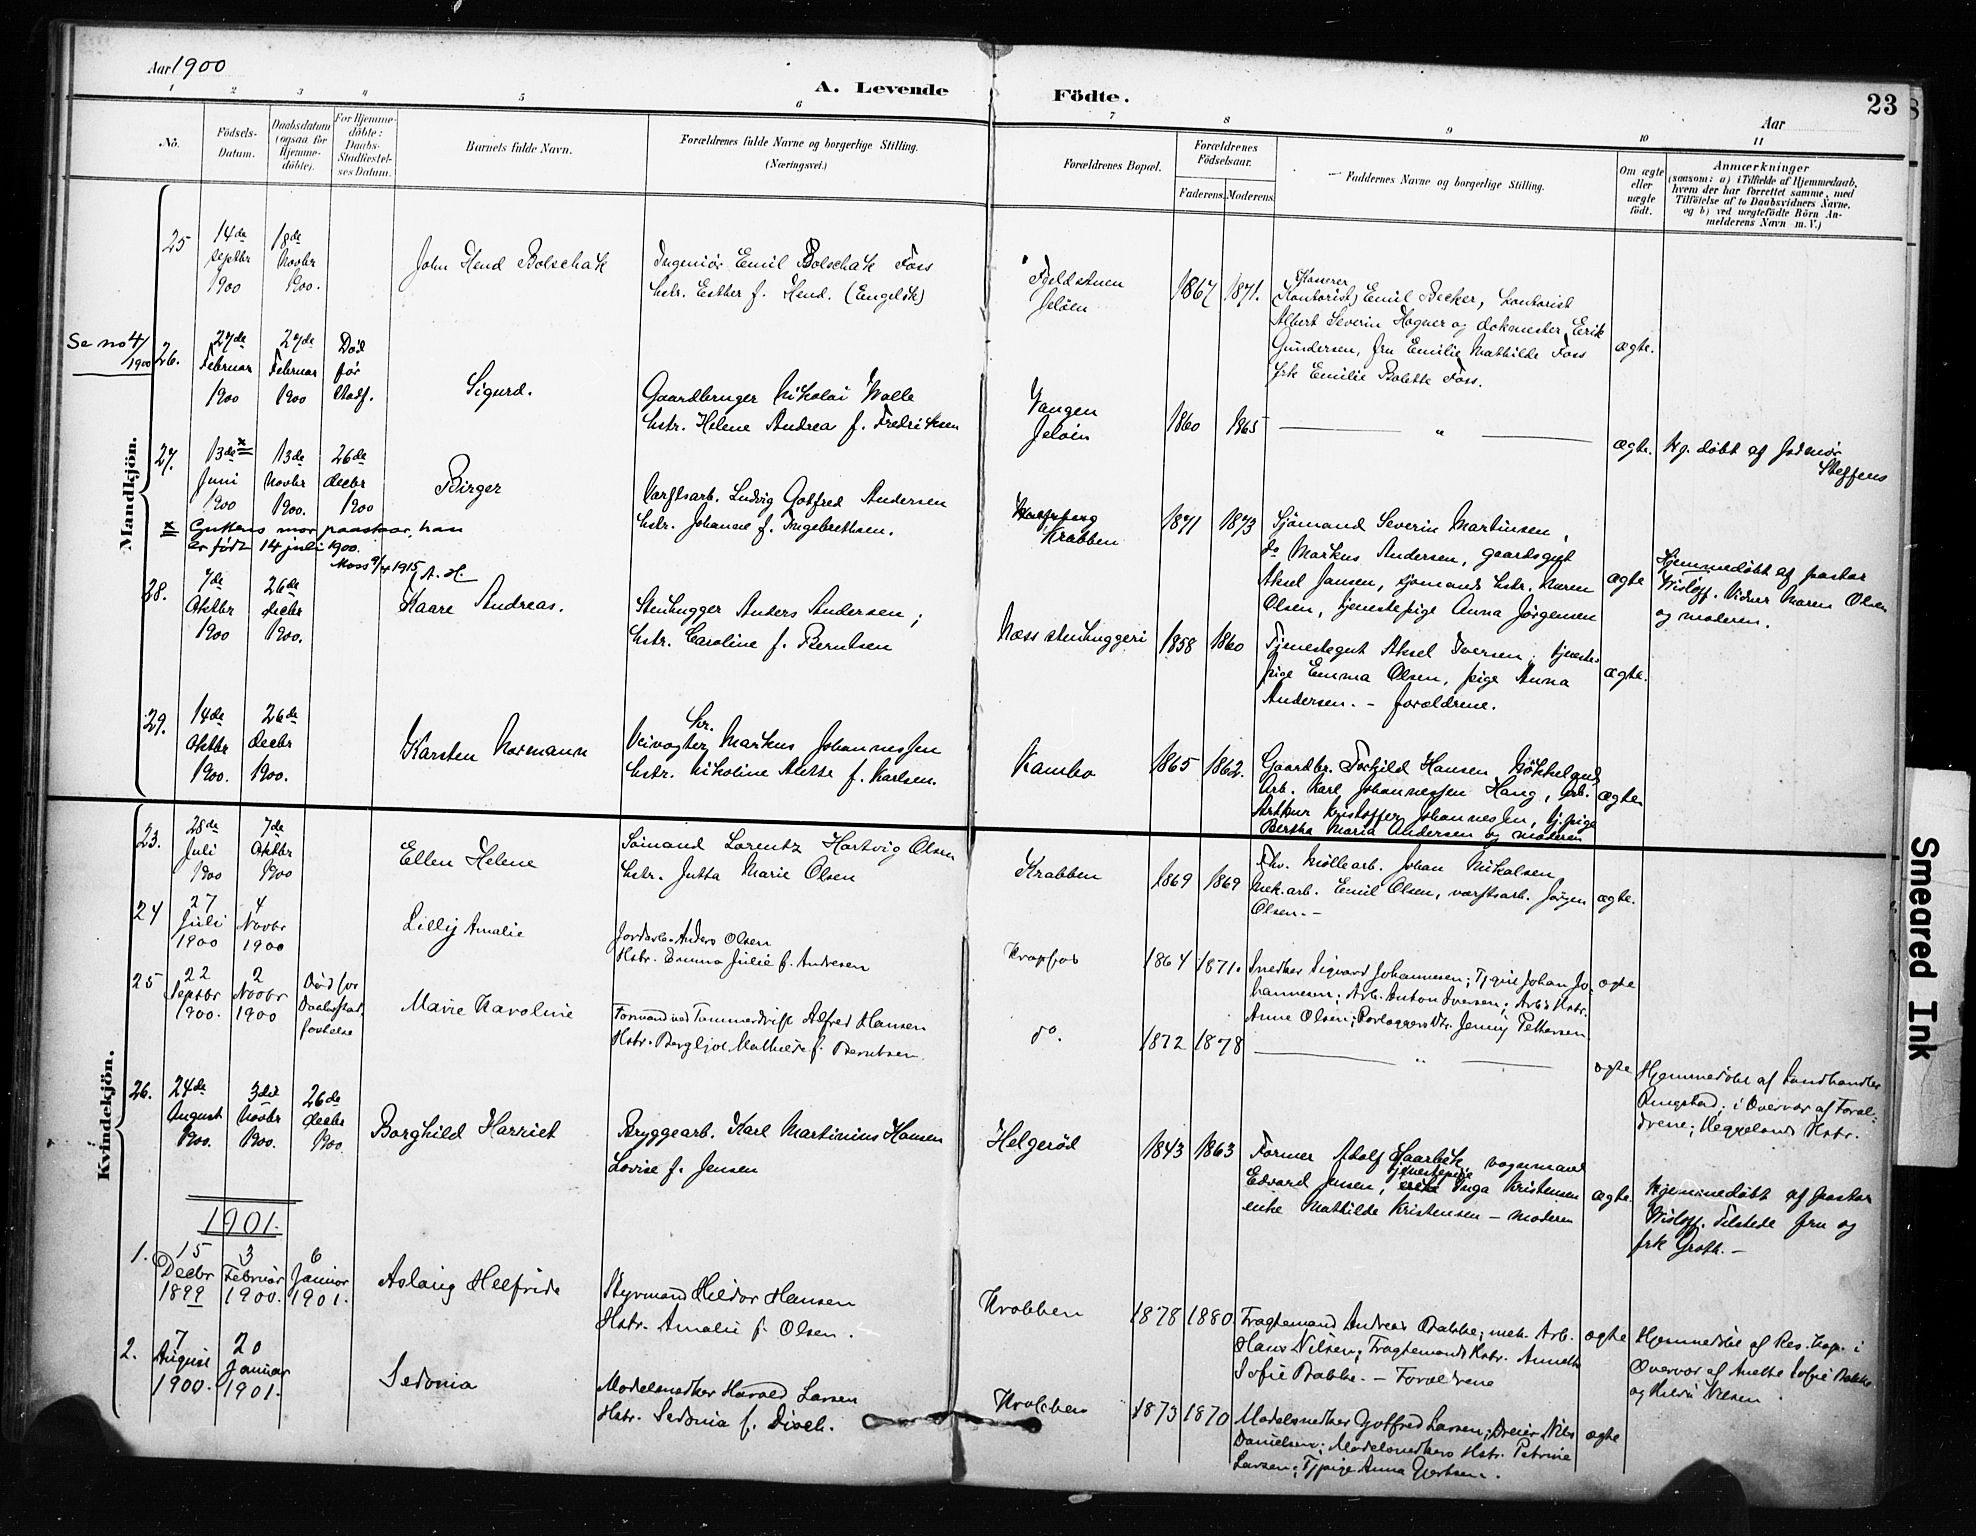 Aar 1900
A. Levende Födte.
Aar
23
1 2 3 4 5 6 7 8 9 10 11
No.
Födsels-
Datum.
Daabsdatum
(ogsaa for
Hjemme-
döbte).
For Hjemme-
döbte:
Daabs-
Stadfæstel-
ses Datum.
Barnets fulde Navn.
Forældrenes fulde Navne og borgerlige Stilling.
(Næringsvei.)
Forældrenes Bopæl.
Forældrenes
Födselsaar.
Faderens. Moderens.
Faddernes Navne og borgerlige Stilling.
Om ægte
eller
uægte
födt.
Anmærkninger
(saasom: a) i Tilfælde af Hjemmedaab,
hvem der har forrettet samme, med
Tilföielse af to Daabsvidners Navne.
og b) ved uægtefödte Börn An-
melderens Navn m. V.)
Mandkjön.
25
14de
Septbr
1900
18de
Novbr
1900.
John Hend Bolschak
Ingeniör Emil Bolschak Foss
hstr. Esther f. Hend. (Engelsk)
Fjeldstuen
Jelöen
1867 1871.
Kasserer
(Kontorist) Emil Becker, Kontorist
Albert Severin Hogner og dokmester Erik
Gundersen, fru Emilie Mathilde Foss
frk Emilie Bolette Foss.
ægte.
Se no 4/
1900
26.
27de
Februar
1900
27de
Februar
1900
Död
för
Stadf.
Sigurd.
Gaardbruger Nikolai Walle
hstr. Helene Andrea f. Fredriksen
Vangen
Jelöen
1860 1865
"
ægte.
Hg. döbt af Jodmor
Steffens
27.
13de x
Juni
1900
13de
Novbr
1900.
26de
decbr
1900
Birger
Værftsarb. Ludvig Gotfred Andersen
hstr. Johanne f. Ingebrethsen.
Krabben
1871 1873
Sjömand Severin Martinsen,
do Markus Andersen, gaardsgut
Aksel Jansen, sjomands hstr. Maren
Olsen, tjenestepige Anna Jörgensen
ægte
Hjemmedöbt af pastor
Wisløff. Vidner Maren Olsen
og moderen.
x Guttens mor paastaar, han
er født 14 juli 1900.
Moss 9/4 1915, A. H.
28.
7de
Oktbr
1900
26de
decbr
1900.
Kaare Andreas.
Stenhugger Anders Andersen;
hstr. Caroline f. Berntsen
Næss stenhuggeri
1858 1860
Tjenestegut Aksel Iversen, tjeneste-
pige Emma Olsen, pige Anna
Andersen. – forældrene.
ægte.
29.
14de
Oktbr
1900.
26de
decbr
1900.
Karsten Normann
Kr.
Veivogter Markus Johannessen
hstr. Nikoline Alette f. Karlsen.
Kambo
1865 1862.
Gaardbr. Torkild Hansen
Arb. Karl Johannessen Haug, arb.
Arthur Kristoffer Johannessen, tj.pige
Bertha Maria Andersen og moderen
ægte
Kvindekjön.
23.
28de
Juli
1900
7de
Oktbr
1900
Ellen Helene
Sømand Lorentz Hartvig Olsen
hstr. Jutta Marie Olsen
Krabben
1869 1869
Fhv. Møllearb. Johan Nikolsen,
mek.arb. Emil Olsen, værftsarb. Jørgen
Olsen. –
ægte.
24
27
Juli
1900
4
Novbr
1900
Lilly Amalie
Jordarb. Anders Olsen
Hstr. Emma Julie f. Andresen
Krapfos
1864 1871.
Snedker Sigvard Johannesen; Tj.gut Johan Jo-
hannesen; Arb. Anton Iversen; Arb's Hstr.
Anne Olsen; Jenny Pettersen
ægte
25
22
Septbr
1900.
2
Novbr
1900
Död for
Daabsstad-
fæstelse
Marie Karoline
Formand ved Tømmerdrift Alfred Hansen
Hstr. Bergljot Mathilde f. Berntsen
do.
1872 1878
"
ægte
Hjemmedøbt af Landhandler
Ringstad; i Overvær af Foræl-
drene; Hstr.
26.
24de
August
1900.
3die
Novbr
1900.
26de
decbr
1900.
Borghild Harriet
Bryggearb. Karl Martinius Hansen
Lovise f. Jensen
Helgeröd
1843 1863
Former Adolf Haarbek, vognmand
Edvard Jensen, tjenestepige Inga Kristensen
enke Mathilde Kristensen – moderen
ægte.
Hjemmedöbt af pastor
Wisløff. Tilstede fru og
frk Groth. –
1901.
1.
15
Decbr
1899
3
Februar
1900.
6
Januar
1901.
Aslaug Helfride
Styrmand Hildor Hansen
Hstr. Amalie f. Olsen.
Krabben
1878 1880
Fragtemand Andreas Bakke; mek. Arb.
Hans Nilsen; Fragtemands Hstr. Annette
Sofie Bakke. – Forældrene
ægte
Hjemmedøbt af Res. Kap. i
Overvær af Anette Sofie Bakke
og Nilsen
2.
7
August
1900.
20
Januar
1901.
Sedonia
Modelsnedker Harald Larsen
Hstr. Sedonia f.
Krabben
1873 1870
Modelsnedker Gotfred Larsen; Dreier Nils
Danielsen; Modelsnedkers Hstr. Petrine
Larsen; Tj.pige Anna Gjertsen.
ægte
Smeared Ink